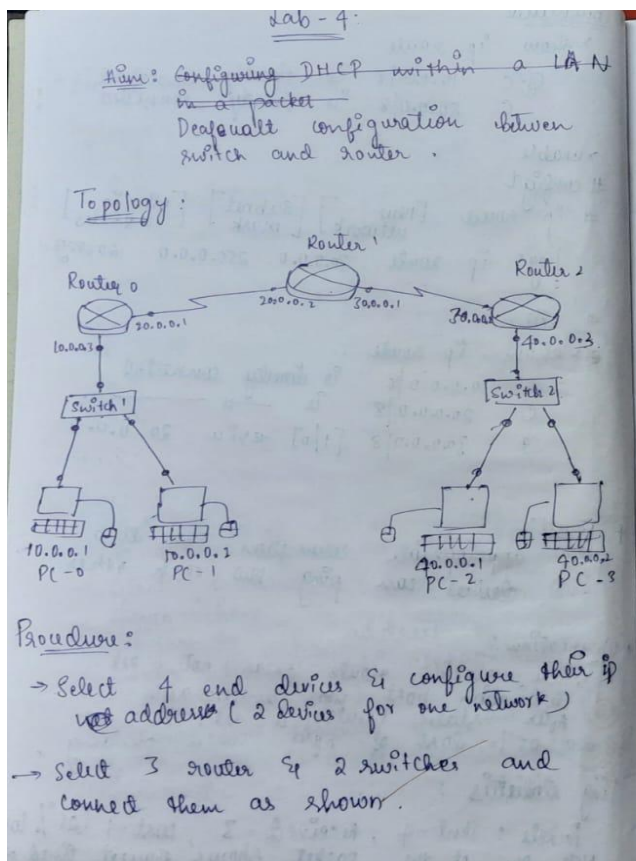 Lab - 4.
Aim: Configuring DHCP within a LAN
in a packet
Deafoualt configuration betwen
switch and router.
Topology:
Router 1
Router 0
Router 2
20.0.0.1
20.0.0.2
30.0.0.1
10.0.0.3
40.0.0.3
Switch 1
Switch 2
10.0.0.1
10.0.0.2
40.0.0.1
40.0.0.2
PC-0
PC-1
PC-2
PC-3
Procedure:
→ Select 4 end devices & configure their ip
address (2 devices for one network)
→ Select 3 router & 2 switches and
connect them as shown.